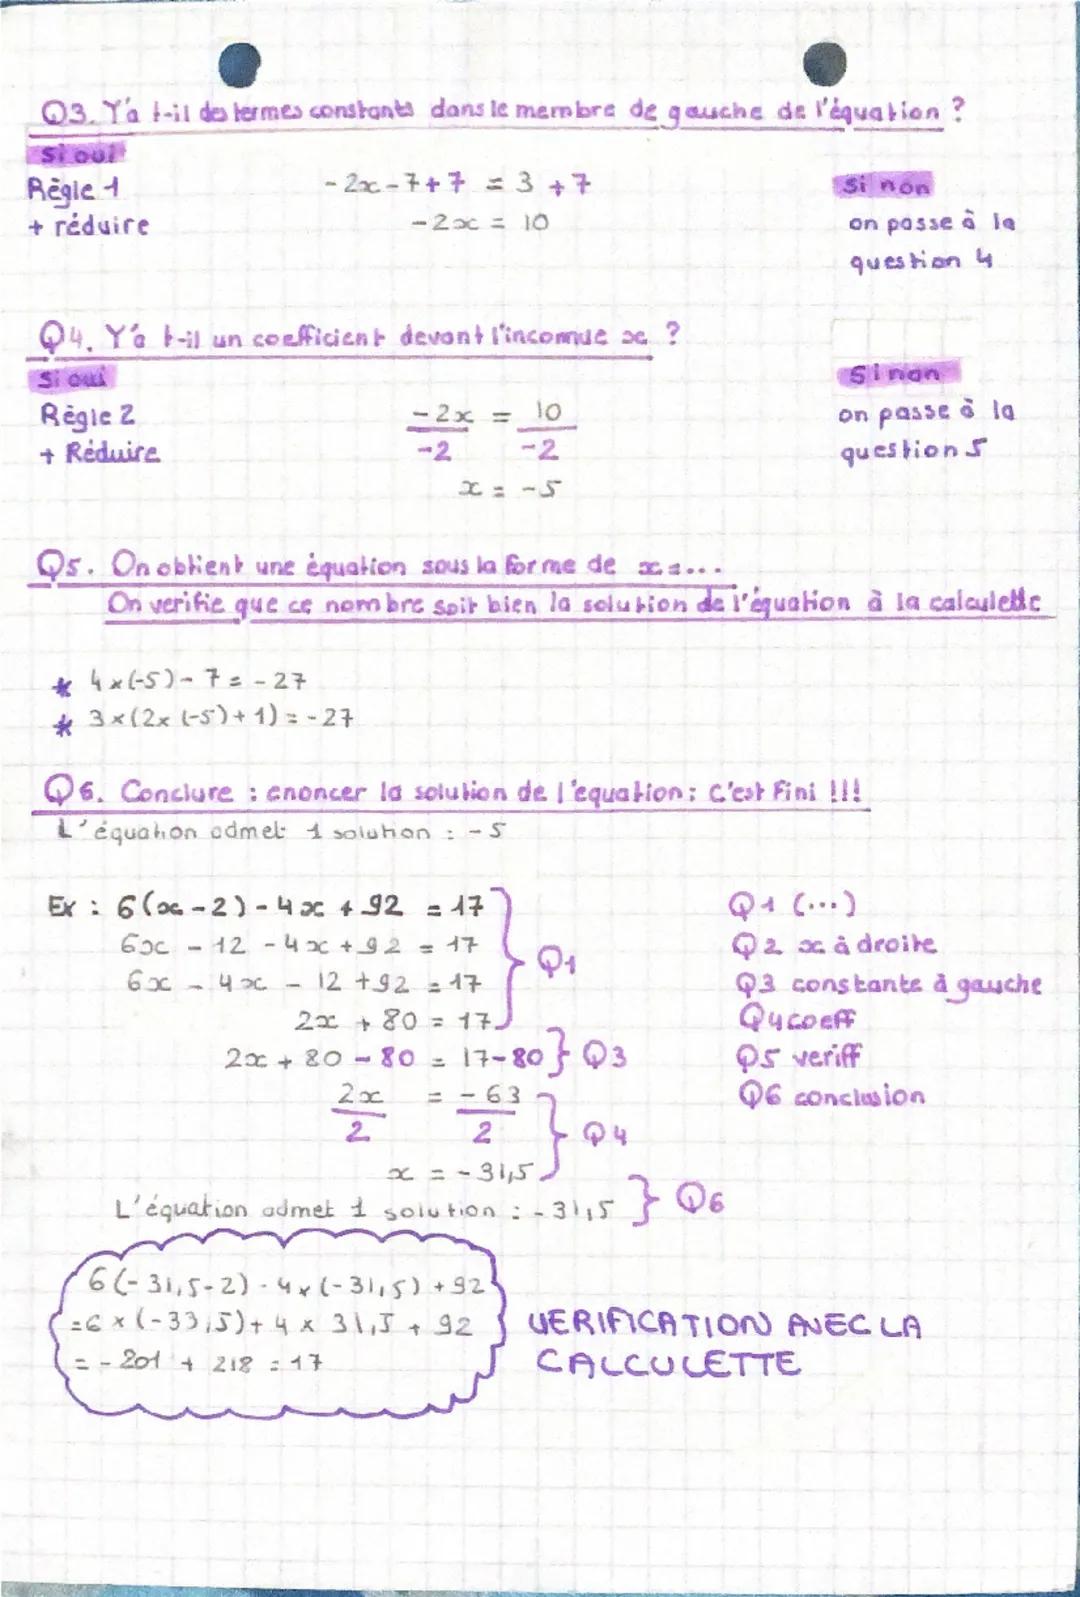 Q3. Y'a t-il des termes constants dans le membre de gauche de l'équation ?
Si oui
Règle 1
+ réduire
-2x-7+7 = 3+7
-2x = 10
Si non
on passe à la
question 4
Q4. Y'a t-il un coefficient devant l'inconnue x ?
Si oui
Règle 2
+ Réduire
-2x = 10
-2 -2
x = -5
Si non
on passe à la
question 5
Q5. On obtient une équation sous la forme de x=...
On verifie que ce nombre soit bien la solution de l'équation à la calculette
* 4x(-5)-7=-27
* 3x(2x(-5)+1)=-27
Q6. Conclure : enoncer la solution de l'equation: C'est Fini !!!
L'équation admet 1 solution : -5
Ex : 6(x-2)-4x+92 = 17
6x - 12 - 4x + 92 = 17
6x - 4x - 12 + 92 = 17
2x + 80 = 17
Q1
2x + 80 - 80 = 17-80 } Q3
2x = -63
2 2
Q4
x = -31,5
L'équation admet 1 solution : -31,5 } Q6
Q1 (...)
Q2 x à droite
Q3 constante à gauche
Q4 coeff
Q5 veriff
Q6 conclusion
6(-31,5-2)-4x(-31,5)+92
=6x(-33,5)+4x31,5+92
=-201+218=17
VERIFICATION AVEC LA
CALCULETTE